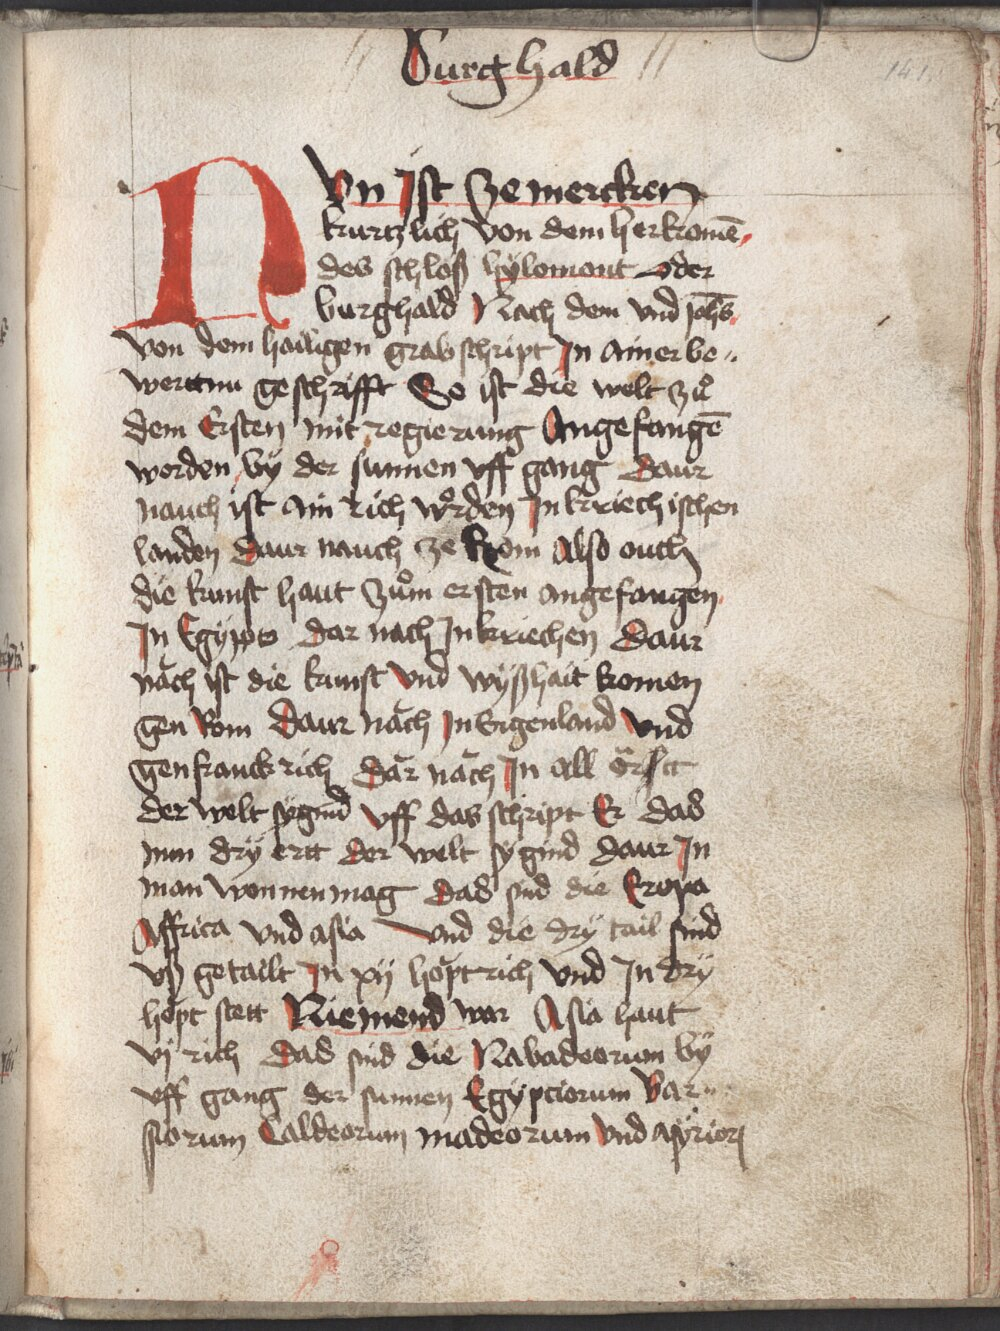 Burghald
141
Nvn Jst Ze mercken
kurtzlich von dem herkomē
des schloß hÿlomont oder
burghald Nach dem vnd johs̄
von dem hailigen grab schript Jn ainer be„
werttnn geschrifft So ist die welt zuͦ
dem Ersten mit regierung Angefangē
worden by der sunnen vff gang Daur
nauch ist ain rich woͤrden Jn kriechischen
landen Daur nauch ze Rom Also ouch
die kunst haut Zuͦm ersten angefangen
Jn Egÿpto Dar nach Jn kriechen Daur
nāch ist die kunst vnd wÿßhait komen
gen Rom Daur nāch Jn Engenland vnd
gen franckrich Dār nāch Jn all
der welt sygind vff das schript Er Das
nun drÿ ertt der welt sygind Daur Jn
man wonnen mag Das sind die Eropa
Affrica vnd asia vnd die drÿ tail sind
vß getailt Jn xij hoptrich vnd Jn drÿ
hopt stett Niemend war Asia haut
vj rich Das sind die Nabadeorum bÿ
vff gang der sunnen Egÿptiorum Bar„
siorum Caldeorum madeorum vnd asÿrior